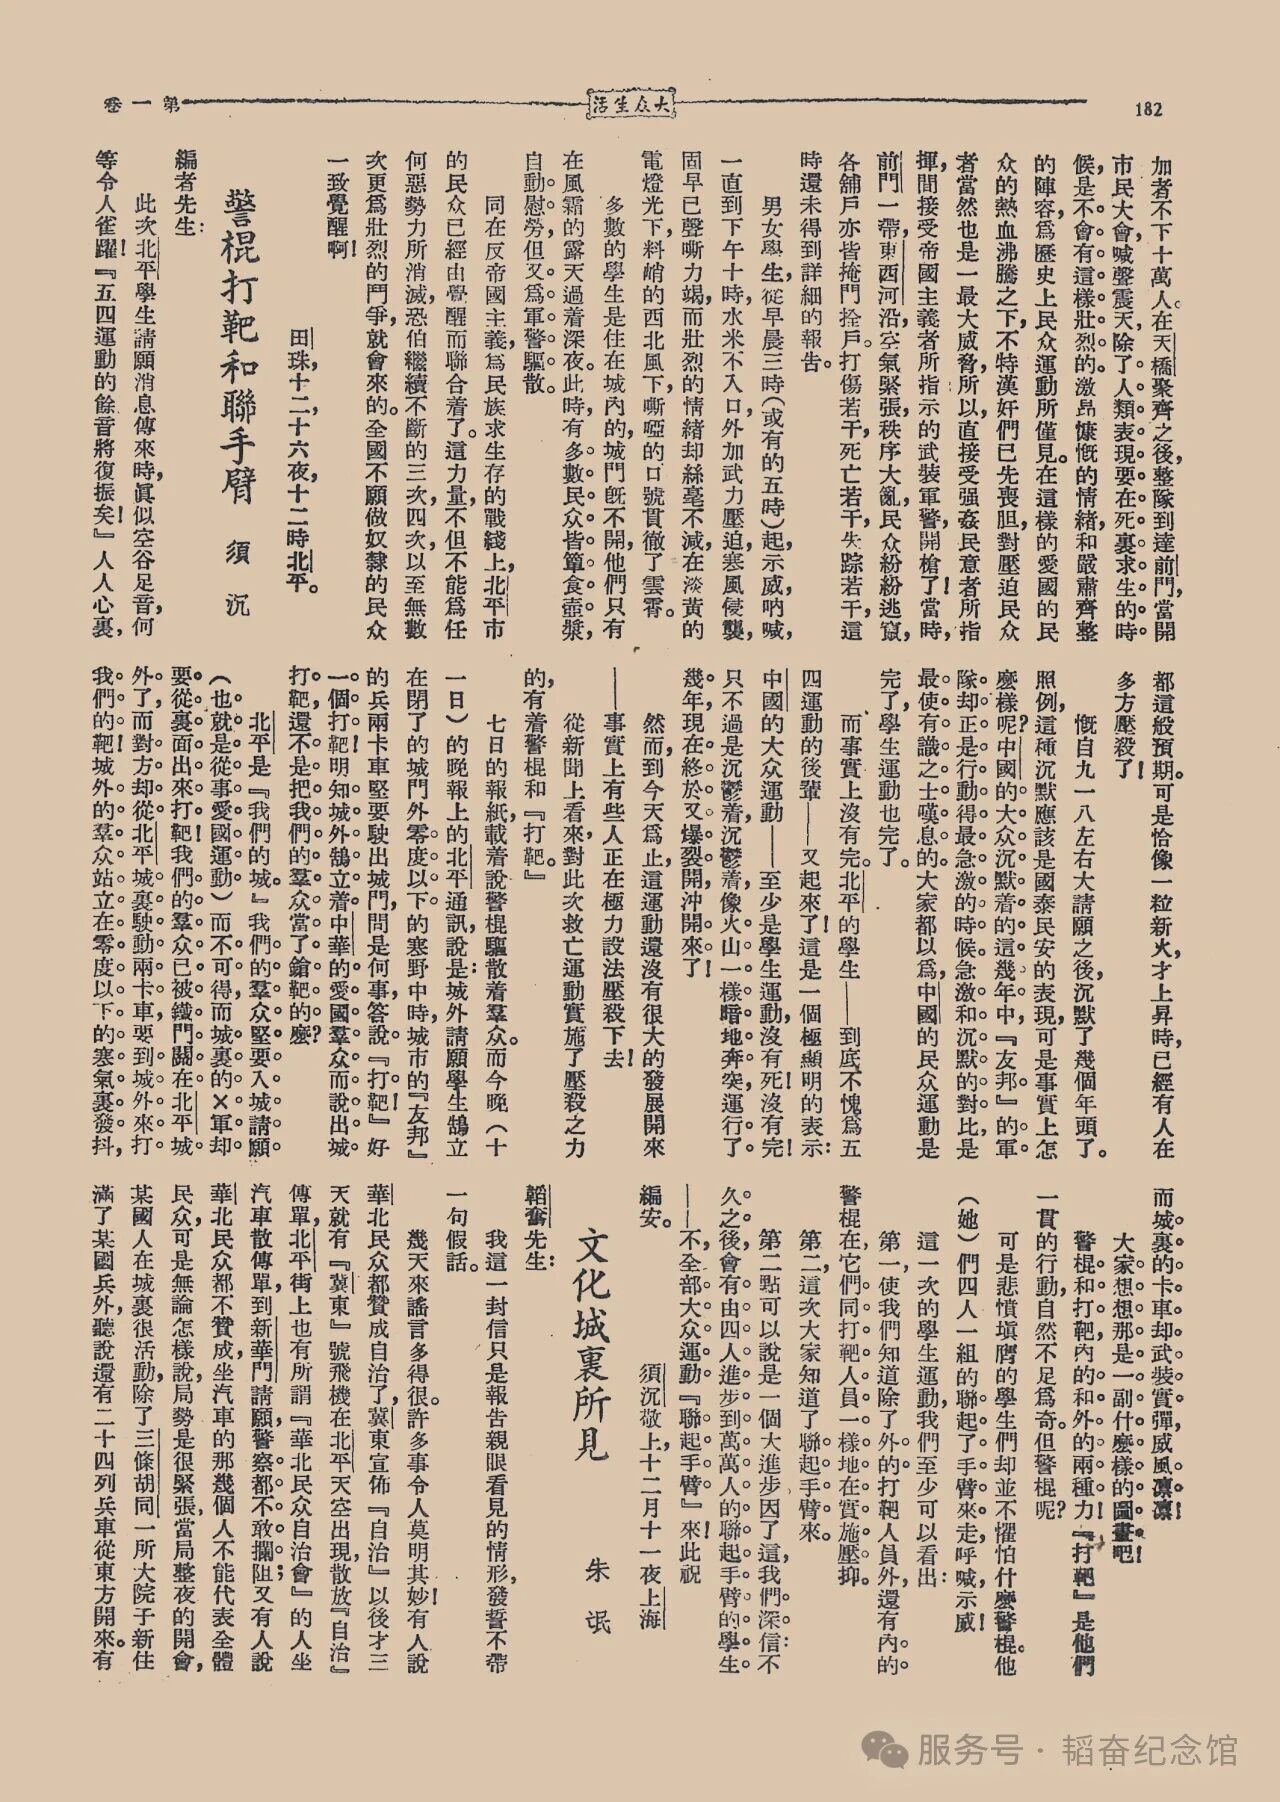 182
大众生活
第一卷
加者不下十萬人。在天橋聚齊之後，整隊到達前門，當開
市民大會，喊聲震天，除了人類表現要在死裏求生的時
候，是不會有這樣壯烈的。激昂慷慨的情緒，和嚴肅齊整
的陣容，爲歷史上民众運動所僅見。在這樣的愛國的民
众的熱血沸騰之下，不特漢奸們已先喪胆，對壓迫民众
者當然也是一最大威脅，所以直接受强姦民意者所指
揮，間接受帝國主義者所指示的武裝軍警，開槍了！當時，
前門一帶，東西河沿，空氣緊張，秩序大亂，民众紛紛逃竄，
各舖戶亦皆掩門拴戶。打傷若干，死亡若干，失踪若干，這
時還未得到詳細的報告。
男女學生，從早晨三時（或有的五時）起，示威吶喊，
一直到下午十時，水米不入口，外加武力壓迫，寒風侵襲，
固早已聲嘶力竭，而壯烈的情緒却絲毫不減。在淡黃的
電燈光下，料峭的西北風下，嘶啞的口號貫徹了雲霄。
多數的學生是住在城內的，城門旣不開，他們只有
在風霜的露天過着深夜。此時有多數民众皆簞食壺漿，
自動慰勞，但又爲軍警驅散。
同在反帝國主義，爲民族求生存的戰綫上，北平市
的民众已經由覺醒而聯合着了。這力量，不但不能爲任
何惡勢力所消滅，恐伯繼續不斷的三次，四次，以至無數
次更爲壯烈的鬥爭，就會來的。全國不願做奴隸的民众
一致覺醒啊！
田珠，十二，十六夜，十二時，北平。
警棍打靶和聯手臂　須沉
編者先生：
此次北平學生請願消息傳來時，眞似空谷足音，何
等令人雀躍！『五四運動的餘音將復振矣！』人人心裏，
都這般預期。可是恰像一粒新火，才上昇時，已經有人在
多方壓殺了！
慨自九一八左右大請願之後，沉默了幾個年頭了。
照例，這種沉默應該是國泰民安的表現，可是事實上怎
麽樣呢？中國的大众沉默着的這幾年中，『友邦』的軍
隊却正是行動得最急激的時候。急激和沉默的對比，是
最使有識之士嘆息的。大家都以爲，中國的民众運動是
完了，學生運動也完了。
而事實上沒有完。北平的學生——到底不愧爲五
四運動的後輩——又起來了！這是一個極顯明的表示：
中國的大众運動——至少是學生運動，沒有死！沒有完！
只不過是沉鬱着，沉鬱着，像火山一樣暗地奔突，運行了
幾年，現在終於又爆裂開，沖開來了！
然而，到今天爲止，這運動還沒有很大的發展開來
——事實上有些人正在極力設法壓殺下去！
從新聞上看來，對此次救亡運動實施了壓殺之力
的，有着警棍和『打靶』。
七日的報紙，載着說警棍驅散着羣众。而今晚（十
一日）的晚報上的北平通訊，說是：城外請願學生鵠立
在閉了的城門外零度以下的寒野中時，城市的『友邦』
的兵兩卡車堅要駛出城門，問是何事，答說『打靶！』好
一個『打靶』！明知城外鵠立着中華的愛國羣众，而說出城
打靶，還不是把我們的羣众當了鎗靶的麽？
北平是『我們的城』。我們的羣众堅要入城請願
（也就是從事愛國運動）而不可得，而城裏的×軍却
要從裏面出來打靶！我們的羣众已被鐵門關在北平城
外了，而對方却從北平城裏駛動兩卡車，要到城外來打
我們的靶！城外的羣众站立在零度以下的寒氣裏發抖，
而城裏的卡車却武裝實彈，威風凛凛！
大家想想那是一副什麽樣的圖畫吧！
警棍和打靶，內的和外的兩種力！『打靶』是他們
一貫的行動，自然不足爲奇。但警棍呢？
可是悲憤塡膺的學生們却並不懼怕什麽警棍。他
（她）們四人一組的聯起了手臂來走，呼喊，示威！
這一次的學生運動，我們至少可以看出：
第一，使我們知道除了外的打靶人員外，還有內的
警棍在它們同打靶人員一樣地在實施壓抑。
第二，這次大家知道了聯起手臂來。
第二點可以說是一個大進步。因了這，我們深信：不
久之後，會有由四人進步到萬萬人的聯起手臂的學生
——不，全部大众運動『聯起手臂』來！此祝
編安。
須沉敬上，十二月十一夜，上海
文化城裏所見　朱氓
韜奮先生：
我這一封信只是報告親眼看見的情形，發誓不帶
一句假話。
幾天來謠言多得很。許多事令人莫明其妙！有人說
華北民众都贊成自治了，冀東宣佈『自治』以後才三
天就有『冀東』號飛機在北平天空出現，散放『自治』
傳單，北平街上也有所謂『華北民众自治會』的人坐
汽車散傳單，到新華門請願，警察都不敢攔阻；又有人說
華北民众都不贊成，坐汽車的那幾個人不能代表全體
民众，可是無論怎樣說，局勢是很緊張，當局整夜的開會，
某國人在城裏很活動，除了三條胡同一所大院子新住
滿了某國兵外，聽說還有二十四列兵車從東方開來。有
服务号·韬奋纪念馆